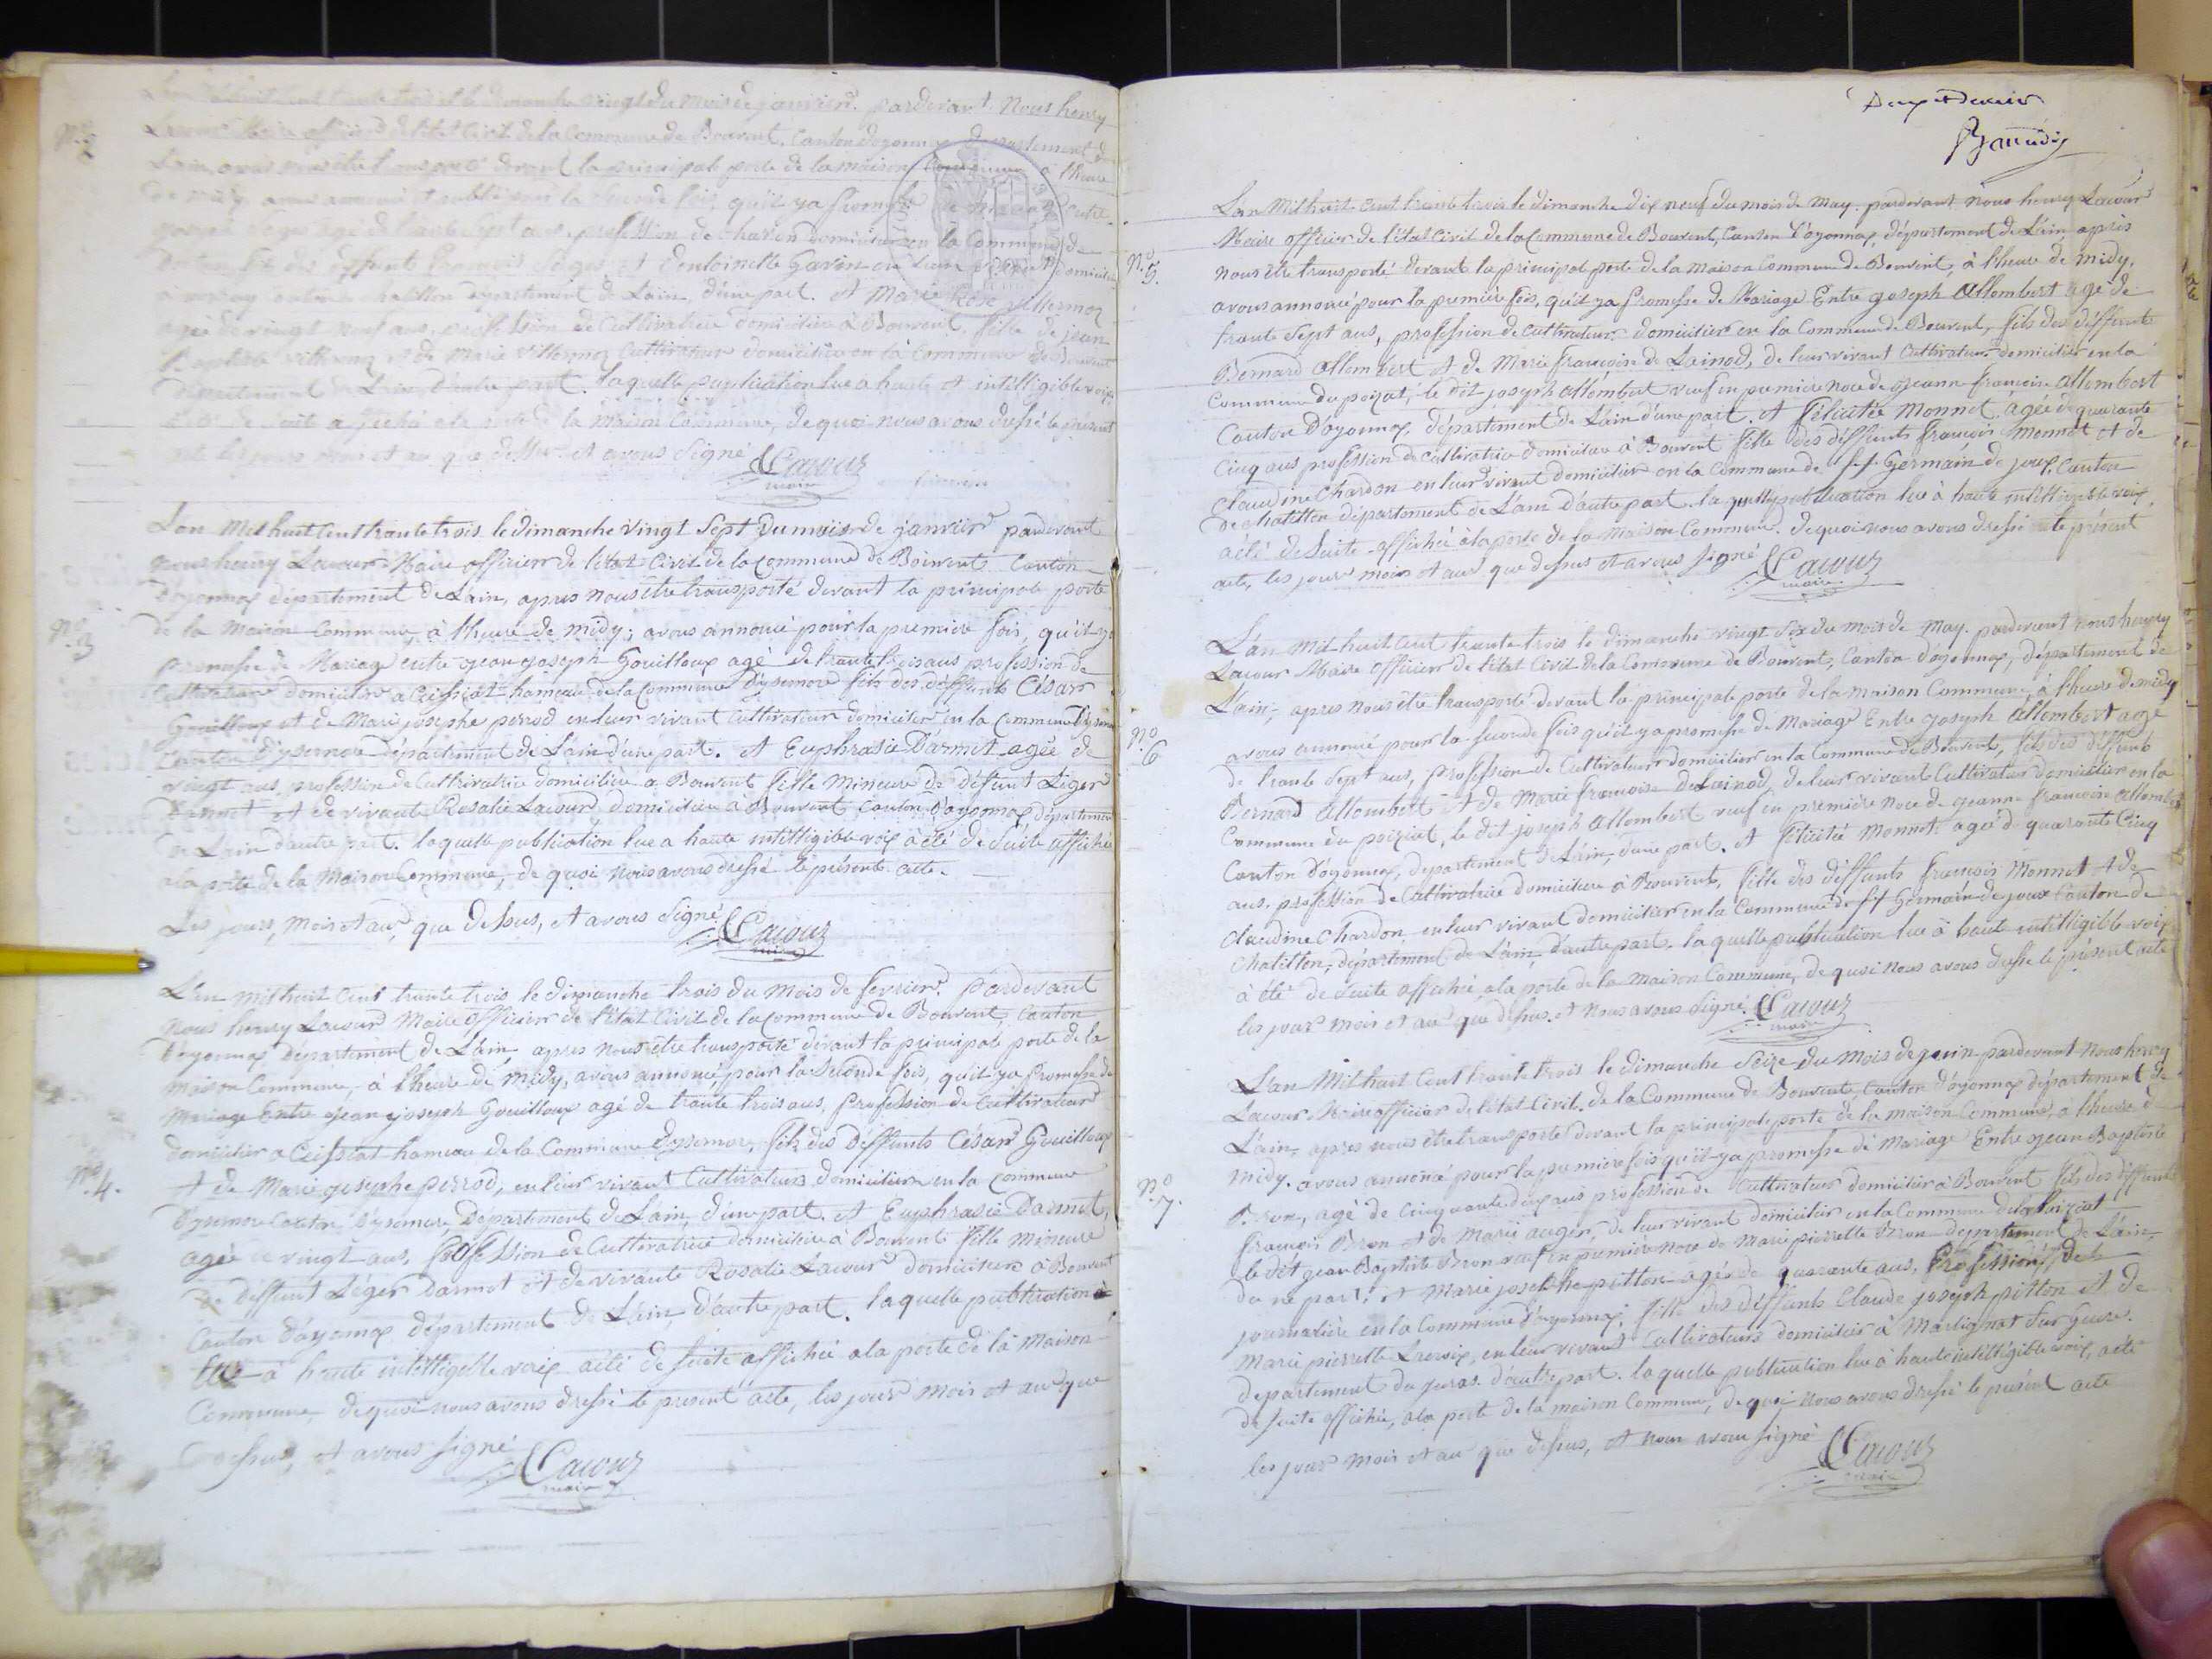 N.º 2
trente trois le dimanche vingt du mois de janvier pardevant Nous henry
Lacour Maire officier de l'état Civil de la Commune de Bouvent, Canton d'oyonnax département de
Lain, avoir nous être transporté devant la principale porte de la maison Commune à l'heure
de midy, avons annoncé et publié pour la seconde fois qu'il ya promesse de mariage entre
agé de trente sept ans, profession de charon domicilié en la Commune de
fils des deffunt françois et d'entoinette Gavin en leur vivant domicilié
Canton de Chatillon département de Lain, d'une part. et Marie Rose villermoz
agée de vingt neuf ans, profession de Cultivatrice domiciliée à Bouvent, fille de jean
Baptiste villermoz et de Marie villermoz Cultivateur domicilié en la Commune de Bouvent
département de Lain d'autre part. laquelle publication lue a haute et intelligible voix
a été de suite affichée a la porte de la maison Commune, de quoi nous avons dressé le présent
acte les jours mois et an que dessus. et avons signé Lacour
maire
N.º 3
L'an Mil huit Cent trante trois le dimanche vingt Sept du mois de janvier pardevant
nous henry Lacour Maire officier de l'état Civil de la Commune de Bouvent Canton
d'oyonnax département de Lain, apres nous être transporté devant la principale porte
de la Maison Commune, à l'heure de midy; avons annoncé pour la premiere fois, qu'il ya
promesse de Mariage entre jean joseph Gouilloux agé de trante trois ans profession de
Cultivateur domicilié a Ceissiat hameau de la Commune d'ysernore fils des deffunts César
Gouilloux et de Marie josephe perrod en leur vivant Cultivateur domicilier en la Commune d'ysernore
Canton d'ysernore département de Lain d'une part. et Euphrasie Darmet agée de
vingt ans, profession de Cultivatrice domiciliée a Bouvent fille Mineure de défunt Léger
Darmet et de vivante Rosalie Lacour, domiciliée à Bouvent Canton d'oyonnax département
de Lain d'autre part. laquelle publication lue a haute intelligible voix à été de suite affichée
a la porte de la Maison Commune, de quoi nous avons dressé le présente acte.
Les jours, Mois et an, que dessus, et avons signé Lacour
maire
N.º 4.
L'an mil huit Cent trante trois le dimanche trois du Mois de fevrier. Pardevant
Nous henry Lacour Maire officier de l'état Civil de la Commune de Bouvent, Canton
d'oyonnax département de Lain, apres nous être transporté devant la principale porte de la
maison Commune, à l'heure de midy, avons annoncé, pour la Seconde fois, qu'il ya Promesse de
Mariage Entre jean joseph Gouilloux agé de trante trois ans, profession de Cultivateur
domicilier a Ceissiat hameau de la Commune d'ysernore, fils des deffunts César Gouilloux
et de Marie josephe perrod, en leur vivant Cultivateurs domicilier en la Commune
d'ysernore Canton d'ysernore, Département de Lain, d'une part. et Euphrasie Darmet,
agée de vingt ans, profession de Cultivatrice domiciliée à Bouvent fille mineure
de deffunt Léger Darmet et de vivante Rosalie Lacour domiciliere a Bouvent
Canton d'oyonnax département de Lain d'autre part. laquelle publication
lue a haute intelligible voix aété de suite affichée a la porte de la Maison
Commune, de quoi nous avons dressé le présent acte, les jour Mois et an que
dessus, et avons signé Lacour
maire
N.º 5.
L'an Mil huit Cent trante trois le dimanche dix neuf du mois de May. pardevant nous henry Lacour
Maire officier de l'état Civil de la Commune de Bouvent, Canton d'oyonnax, département de Lain, apres
nous être transporté devant la principale porte de la Maison Commune de Bouvent, à l'heure de midy,
avons annoncé pour la premiere fois, qu'il ya Promesse de Mariage Entre joseph Allombert agé de
trante Sept ans, profession de cultivateur domicilier en la Commune de Bouvent, fils des deffunts
Bernard Allombert et de Marie françoise de Lainod, de leur vivant Cultivateur domicilier en la
Commune du poizat, le dit joseph Allombert veuf en premiere noce de jeanne françoise Allombert
Canton d'oyonnax, département de Lain d'une part. et félicitée Monnet, agée de quarante
Cinq ans profession de cultivatrice domiciliée à Bouvent fille des deffunts françois Monnet et de
Claudine Chardon en leur vivant domicilier en la Commune de St. Germain de joux, Canton
de chatillon département de Lain d'autre part. laquelle publication lue à haute intelligible voix
aété de suite affichée à la porte de la maison Commune. de quoi nous avons dressé le présent
acte, les jour mois et an que dessus et avons signé Lacour
maire
N.º 6
L'an Mil huit Cent trante trois le dimanche vingt Six du mois de May. pardevant nous henry
Lacour Maire officier de l'état Civil de la Commune de Bouvent, Canton d'oyonnax, département de
Lain, apres nous être transporté devant la principale porte de la maison Commune, à l'heure de midy
avons annoncé pour la Seconde fois qu'il ya promesse de Mariage Entre joseph Allombert agé
de trante Sept ans, profession de Cultivateur domicilier en la Commune de Bouvent, fils des deffunts
Bernard Allombert et de Marie françoise de Lainod, de leur vivant Cultivateur domicilier en la
Commune du poizat, le dit joseph Allombert veuf en premiere noce de jeanne françoise Allombert
Canton d'oyonnax, département de Lain, d'une part. et félicitée Monnet agée de quarante Cinq
ans. profession de Cultivatrice domiciliere à Bouvent, fille des deffunts françois Monnet et de
Claudine Chardon, en leur vivant domicilier en la Commune de St Germain de joux Canton de
Chatillon, département de Lain, d'autre part. laquelle publication lue à haute intelligible voix
à été de suite affichée, a la porte de la maison Commune, de quoi nous avons dressé le présent acte
les jour mois et an que dessus. et nous avons signé. Lacour
maire
N.º 7.
L'an Mil huit Cent trante trois le dimanche Seize du Mois de juin pardevant Nous henry
Lacour Maire officier de l'état Civil. de la Commune de Bouvent, Canton d'oyonnax département de
Lain, apres nous être transporté devant la principale porte de la maison Commune, à l'heure de
midy. avons annoncé pour la premiere fois qu'il ya promesse de Mariage Entre jean Baptiste
Bron, agé de Cinquante dix ans profession de Cultivateur domicilier à Bouvent fils des deffunts
françois Bron et de Marie auger, de leur vivant domicilier en la Commune de
le dit jean Baptiste Bron veuf en premiere noce de Marie pierrette Bron département de Lain,
d'une part. et Marie josephe pitton agée de quarante ans, Profession de
journaliere en la Commune d'oyonnax, fille des deffunts Claude joseph pitton et de
Marie pierrette Lacroix, en leur vivant Cultivateurs domicilier à Martignat
département du juras. d'autre part. laquelle publication lue à haute intelligible voix, aété
de suite affichée, a la porte de la maison Commune, de quoi nous avons dressé le présent acte
les jour mois et an que dessus, et nous avons signé Lacour
maire